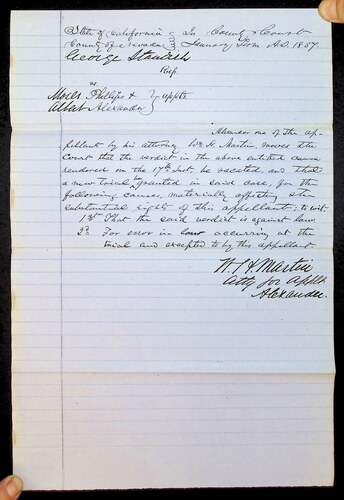 State of California } In County Court
County of Nevada } January Term A.D. 1857.
George Standish
Resp.
vs
Moses Phillips & } applts
Albert Alexander }
Alexander one of the ap-
pellant by his attorney W. H. Martin, moves the
Court that the verdict in the above entitled cause
rendered on the 17th Inst. be vacated, and that
a new trial be granted in said case, for the
following causes, materially affecting the
substantial rights of this appellant; to wit.
1st That the said verdict is against law
2d For error in law occurring at the
trial and excepted to by this appellant.
Martin
atty for applt
Alexander.